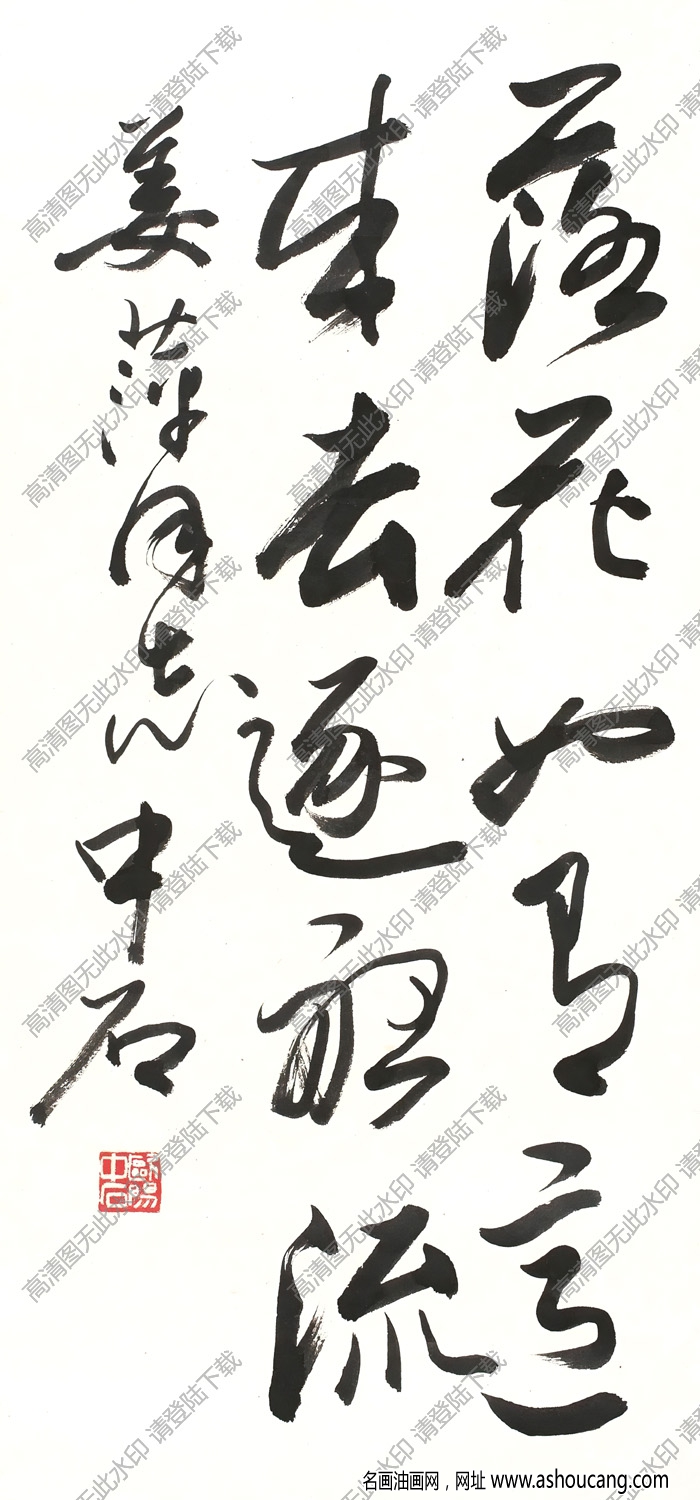 落花如有意
来去逐船流
姜萍同志 中石
歐陽中石
高清图无此水印 请登陆下载
名画油画网，网址 www.ashoucang.com